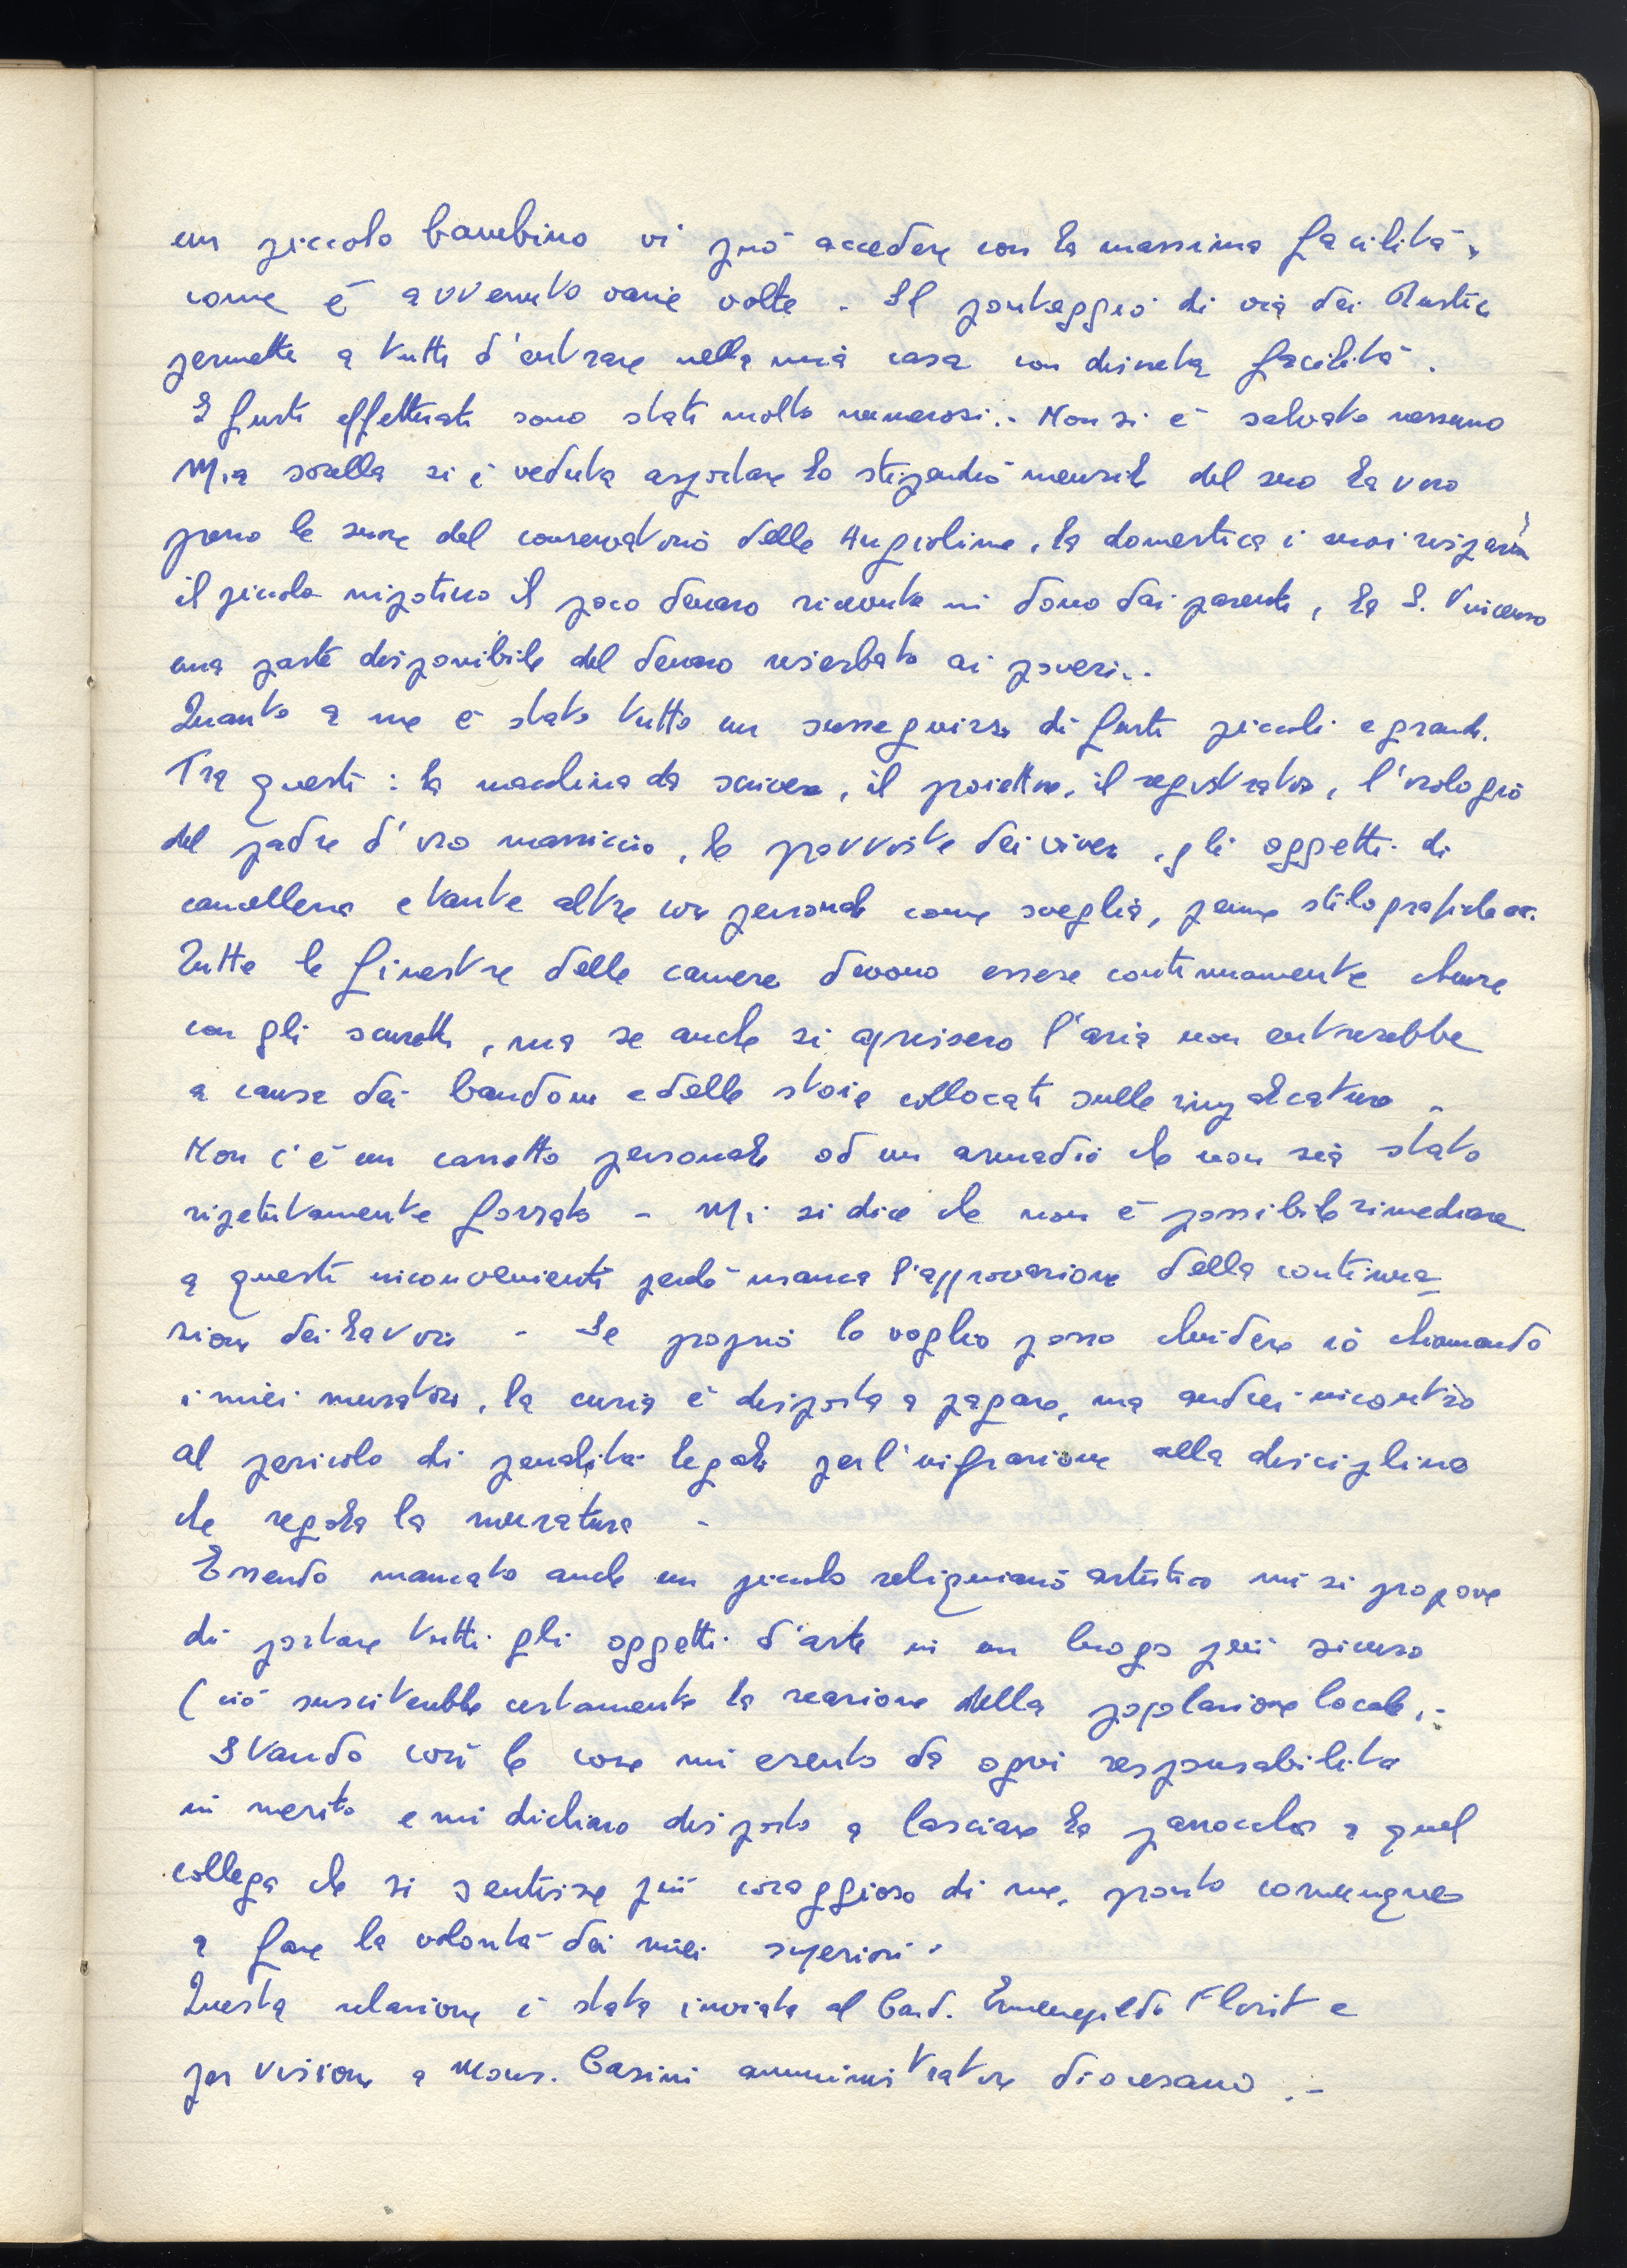 un piccolo bambino vi può accedere con la massima facilità,
come è avvenuto varie volte. Il ponteggio di via dei Rustici
permette a tutti d'entrare nella mia casa con discreta facilità.
I furti effettuati sono stati molto numerosi.. Non si è salvato nessuno
Mia sorella si è veduta asportare lo stipendio mensile del suo lavoro
presso le suore del conservatorio delle Angioline, la domestica i suoi risparmi
il piccolo nipotino il poco denaro ricevuto in dono dai parenti, la S. Vincenzo
una parte disponibile del denaro riserbato ai poveri..
Quanto a me è stato tutto un susseguirsi di furti piccoli e grandi.
Tra questi: la macchina da scrivere, il proiettore, il registratore, l'orologio
del padre d'oro massiccio, le provviste dei viveri, gli oggetti di
cancelleria e tante altre cose personali come sveglia, penne stilografiche ecc.
Tutte le finestre delle camere devono essere continuamente chiuse
con gli scuretti, ma se anche si aprissero l'aria non entrerebbe
a causa dei bandoni e delle stoie collocati sulle impalcature -
Non c'è un cassetto personale od un armadio che non sia stato
ripetutamente forzato - Mi si dice che non è possibile rimediare
a questi inconvenienti perchè manca l'approvazione della continua
zione dei lavori - Se proprio lo voglio posso chiudere io chiamando
i miei muratori, la curia è disposta a pagare, ma andrei incontro
al pericolo di penalità legali per l'infrazione alla disciplina
che regola la muratura -
Essendo mancato anche un piccolo reliquiario artistico mi si propone
di portare tutti gli oggetti d'arte in un luogo più sicuro
(ciò susciterebbe certamente la reazione della popolazione locale.-
Stando così le cose mi esento da ogni responsabilità
in merito e mi dichiaro disposto a lasciare la parrocchia a quel
collega che si sentisse più coraggioso di me, pronto comunque
a fare la volontà dei miei superiori.
Questa relazione è stata inviata al Card. Ermenegildo Florit e
per visione a Mons. Casini amministratore diocesano.-